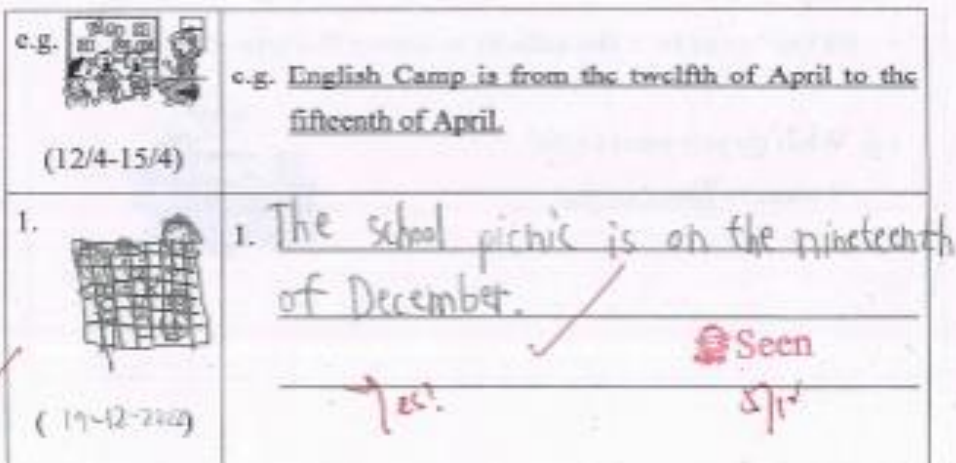 e.g.
(12/4-15/4)
e.g. English Camp is from the twelfth of April to the
fifteenth of April.
1.
1. The school picnic is on the nineteenth
of December.
Seen
Yes!